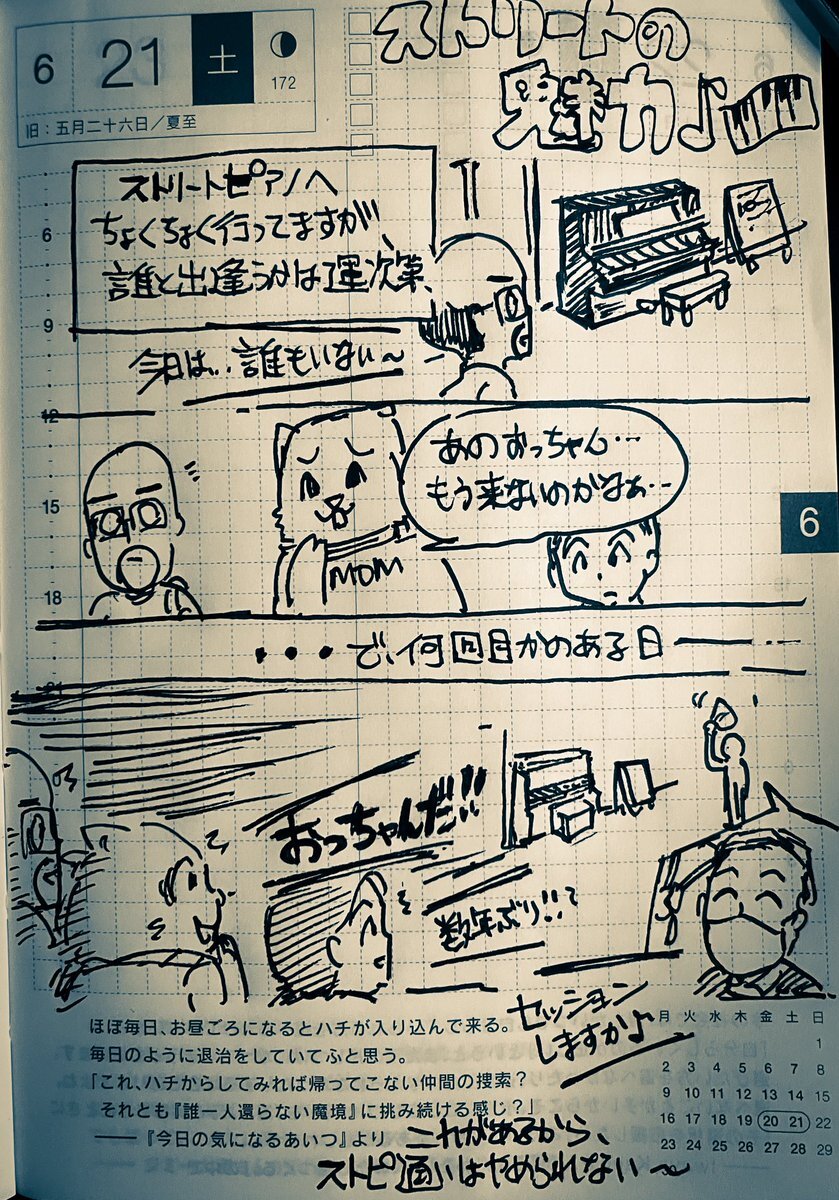 6 21 土 172
旧：五月二十六日／夏至
ストリートの
魅力♪
ストリートピアノへ
ちょくちょく行ってますが、
誰と出逢うかは運次第、
今日は‥誰もいない〜
あのおっちゃん…
もう来ないのかなぁ…
MOM
・・・で、何回目かのある日
おっちゃんだ!!
数年ぶり!!?
セッション
しますか♪
6
9
12
15
18
21
6
ほぼ毎日、お昼ごろになるとハチが入り込んで来る。
毎日のように退治をしていてふと思う。
「これ、ハチからしてみれば帰ってこない仲間の捜索？
それとも『誰一人還らない魔境』に挑み続ける感じ？」
――『今日の気になるあいつ』より
これがあるから、
ストピ通いはやめられない〜
月 火 水 木 金 土 日
1
2 3 4 5 6 7 8
9 10 11 12 13 14 15
16 17 18 19 20 21 22
23 24 25 26 27 28 29